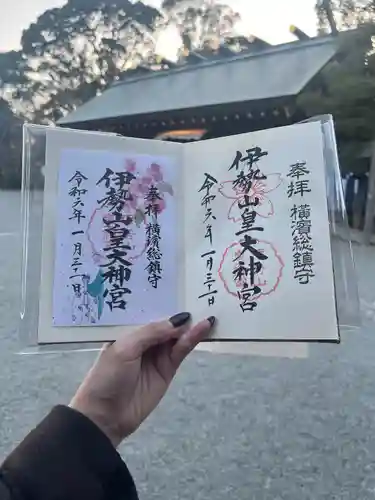 奉拝 横濱総鎮守
伊勢山皇大神宮
令和六年一月三十一日
奉拝 横濱総鎮守
伊勢山皇大神宮
令和六年一月三十一日